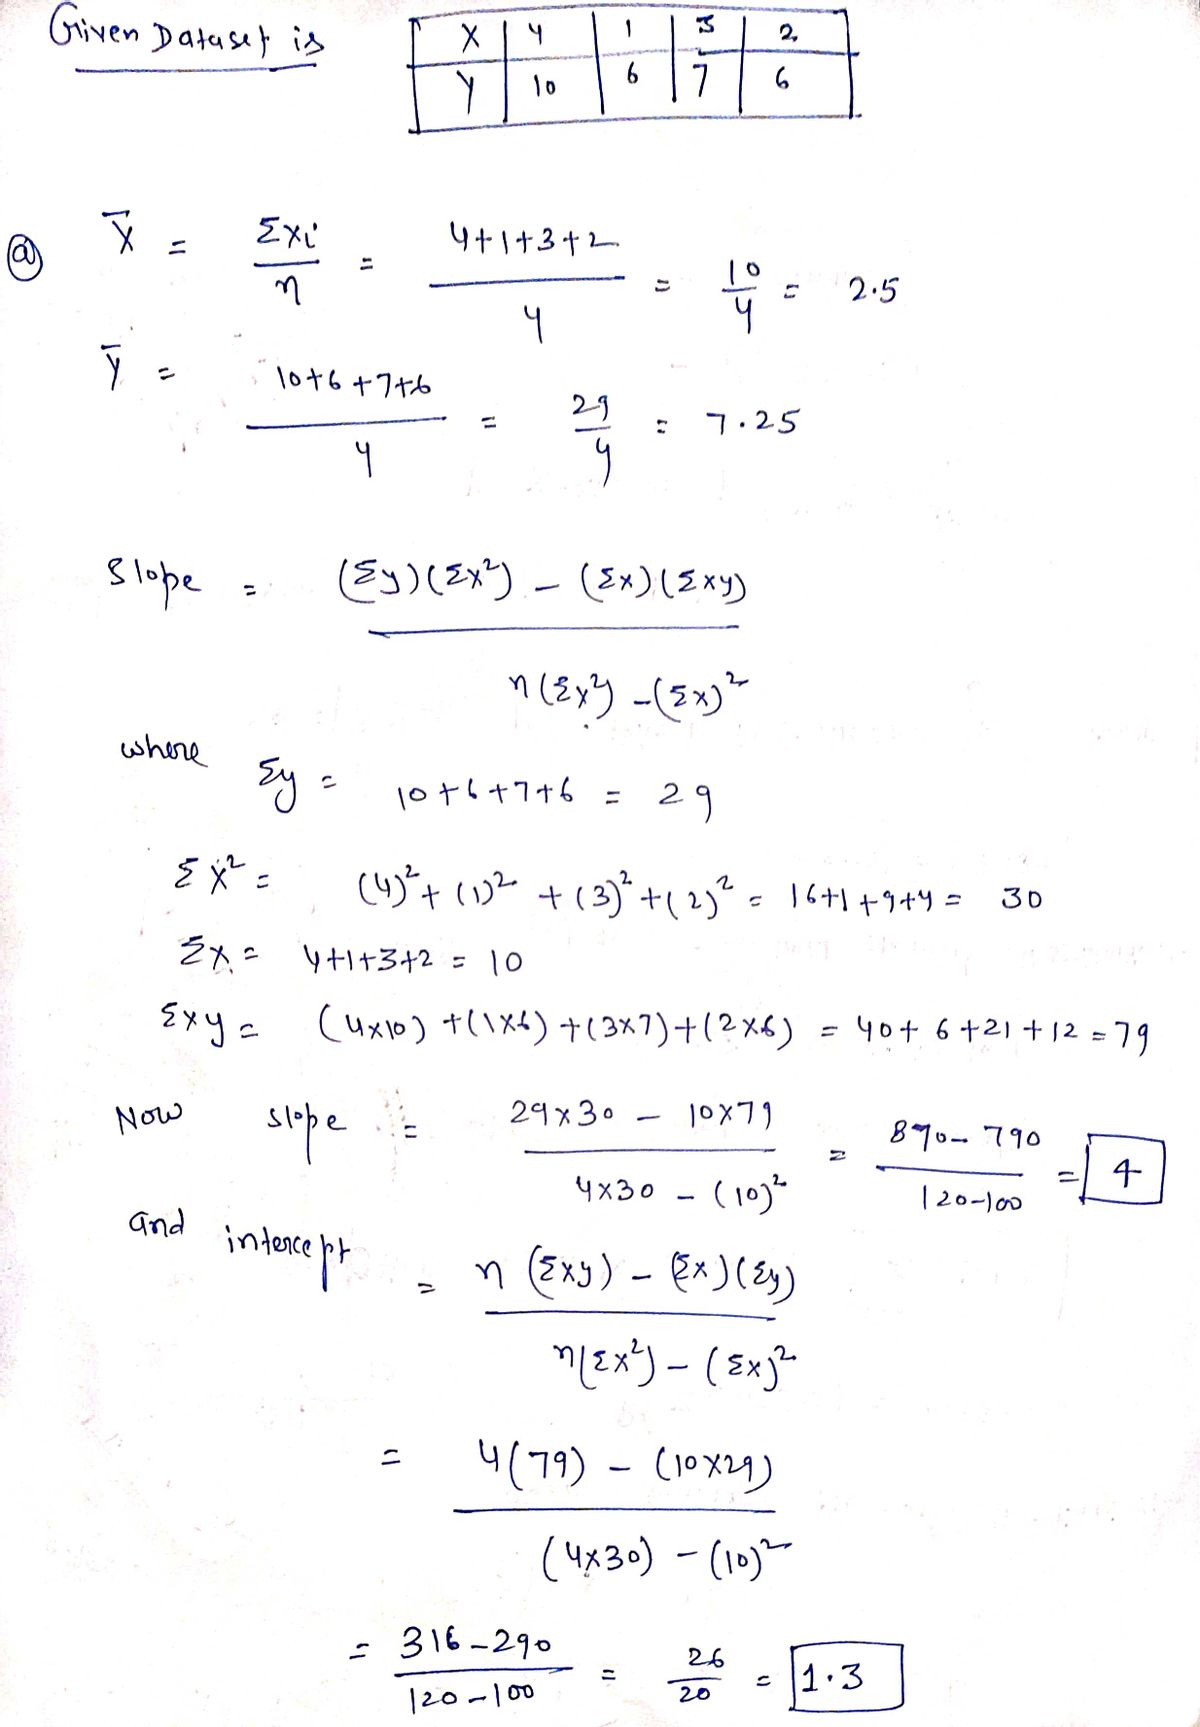 Given Dataset is
X | 4 | 1 | 3 | 2
Y | 10 | 6 | 7 | 6
ⓐ X̄ = Σxi / n = 4+1+3+2 / 4 = 10/4 = 2.5
Ȳ = 10+6+7+6 / 4 = 29/4 = 7.25
Slope = (Σy)(Σx²) - (Σx)(Σxy) / n(Σx²) - (Σx)²
where Σy = 10+6+7+6 = 29
Σx² = (4)² + (1)² + (3)² + (2)² = 16+1+9+4 = 30
Σx = 4+1+3+2 = 10
Σxy = (4×10) + (1×6) + (3×7) + (2×6) = 40+6+21+12 = 79
Now slope = 29×30 - 10×79 / 4×30 - (10)² = 870-790 / 120-100 = 4
and intercept = n(Σxy) - (Σx)(Σy) / n(Σx²) - (Σx)²
= 4(79) - (10×29) / (4×30) - (10)²
= 316-290 / 120-100 = 26/20 = 1.3